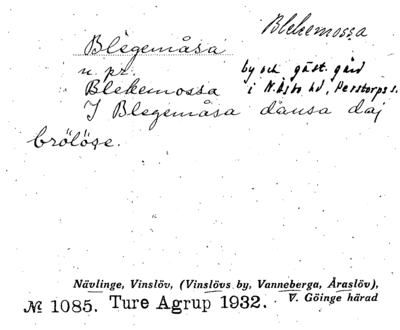 Blekemossa
Blegemåsa
n. pr.
by och gäst. gård
Blekemossa i N. Åsbo hd, Perstorps s.
I Blegemåsa dansa daj
brölöse.
Nävlinge, Vinslöv, (Vinslövs by, Vanneberga, Araslöv),
V. Göinge härad
№ 1085. Ture Agrup 1932.